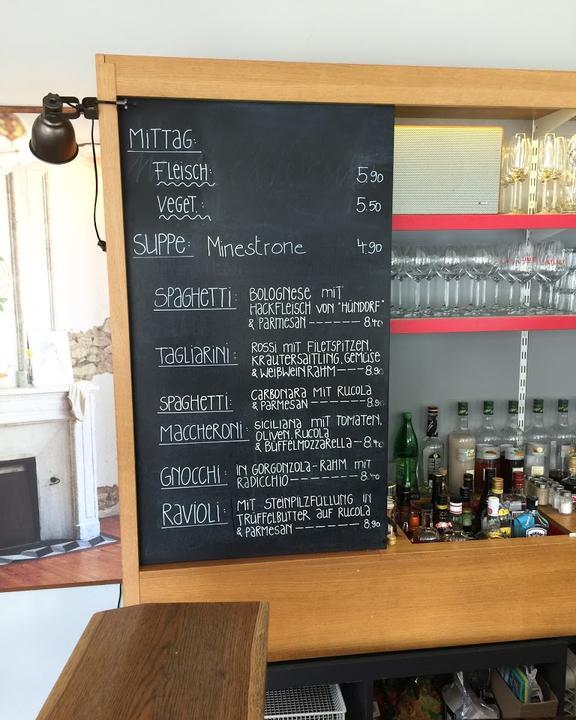 MITTAG:
FLEISCH: 5.90
VEGET.: 5.50
SUPPE: Minestrone 4.90
SPAGHETTI: BOLOGNESE MIT
HACKFLEISCH VON "HÜNDORF"
& PARMESAN ------- 8.40
TAGLIARINI: ROSSI MIT FILETSPITZEN,
KRÄUTERSAITLING, GEMÜSE
& WEIßWEINRAHM ---- 8.90
SPAGHETTI: CARBONARA MIT RUCOLA
& PARMESAN ------- 8.90
MACCHERONI: SICILIANA MIT TOMATEN,
OLIVEN, RUCOLA
& BÜFFELMOZZARELLA -- 8.40
GNOCCHI: IN GORGONZOLA-RAHM MIT
RADICCHIO -------- 8.40
RAVIOLI: MIT STEINPILZFÜLLUNG IN
TRÜFFELBUTTER AUF RUCOLA
& PARMESAN -------- 8.90